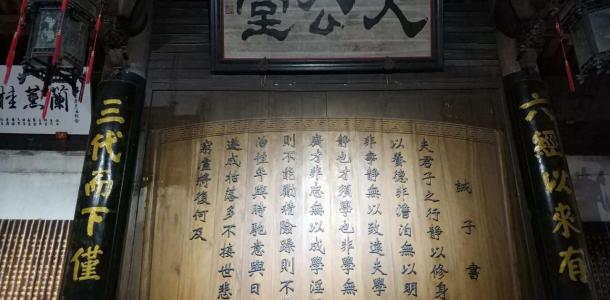 大公堂
六經以來有
三代而下僅
蘭薰桂
誡子書
夫君子之行靜以修身
以養德非澹泊無以明
非寧靜無以致遠夫學
靜也才須學也非學無
廣才非志無以成學淫
則不能勵精險躁則不
治性年與時馳意與日
遂成枯落多不接世悲
窮廬將復何及